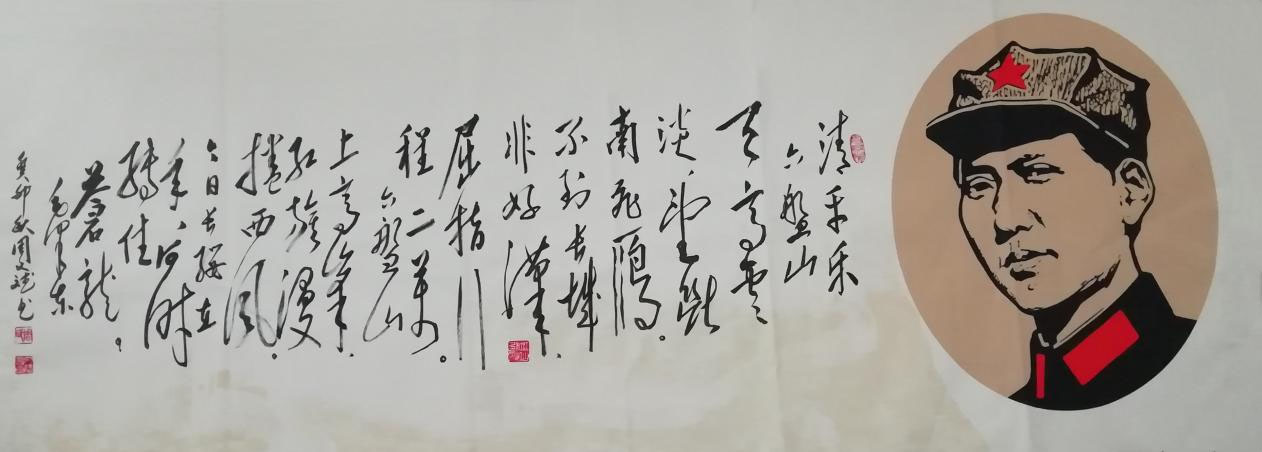 清平乐
六盘山
天高雲
淡,望断
南飞雁。
不到长城
非好漢,
屈指行
程二万。
六盘山
上高峰,
红旗漫
捲西风。
今日长缨在
手,何时
缚住
苍龙。
毛泽东
癸卯秋周文书